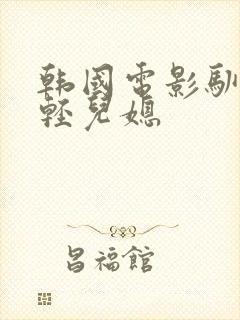 韩國電影馴
輕兒媳
昌福館